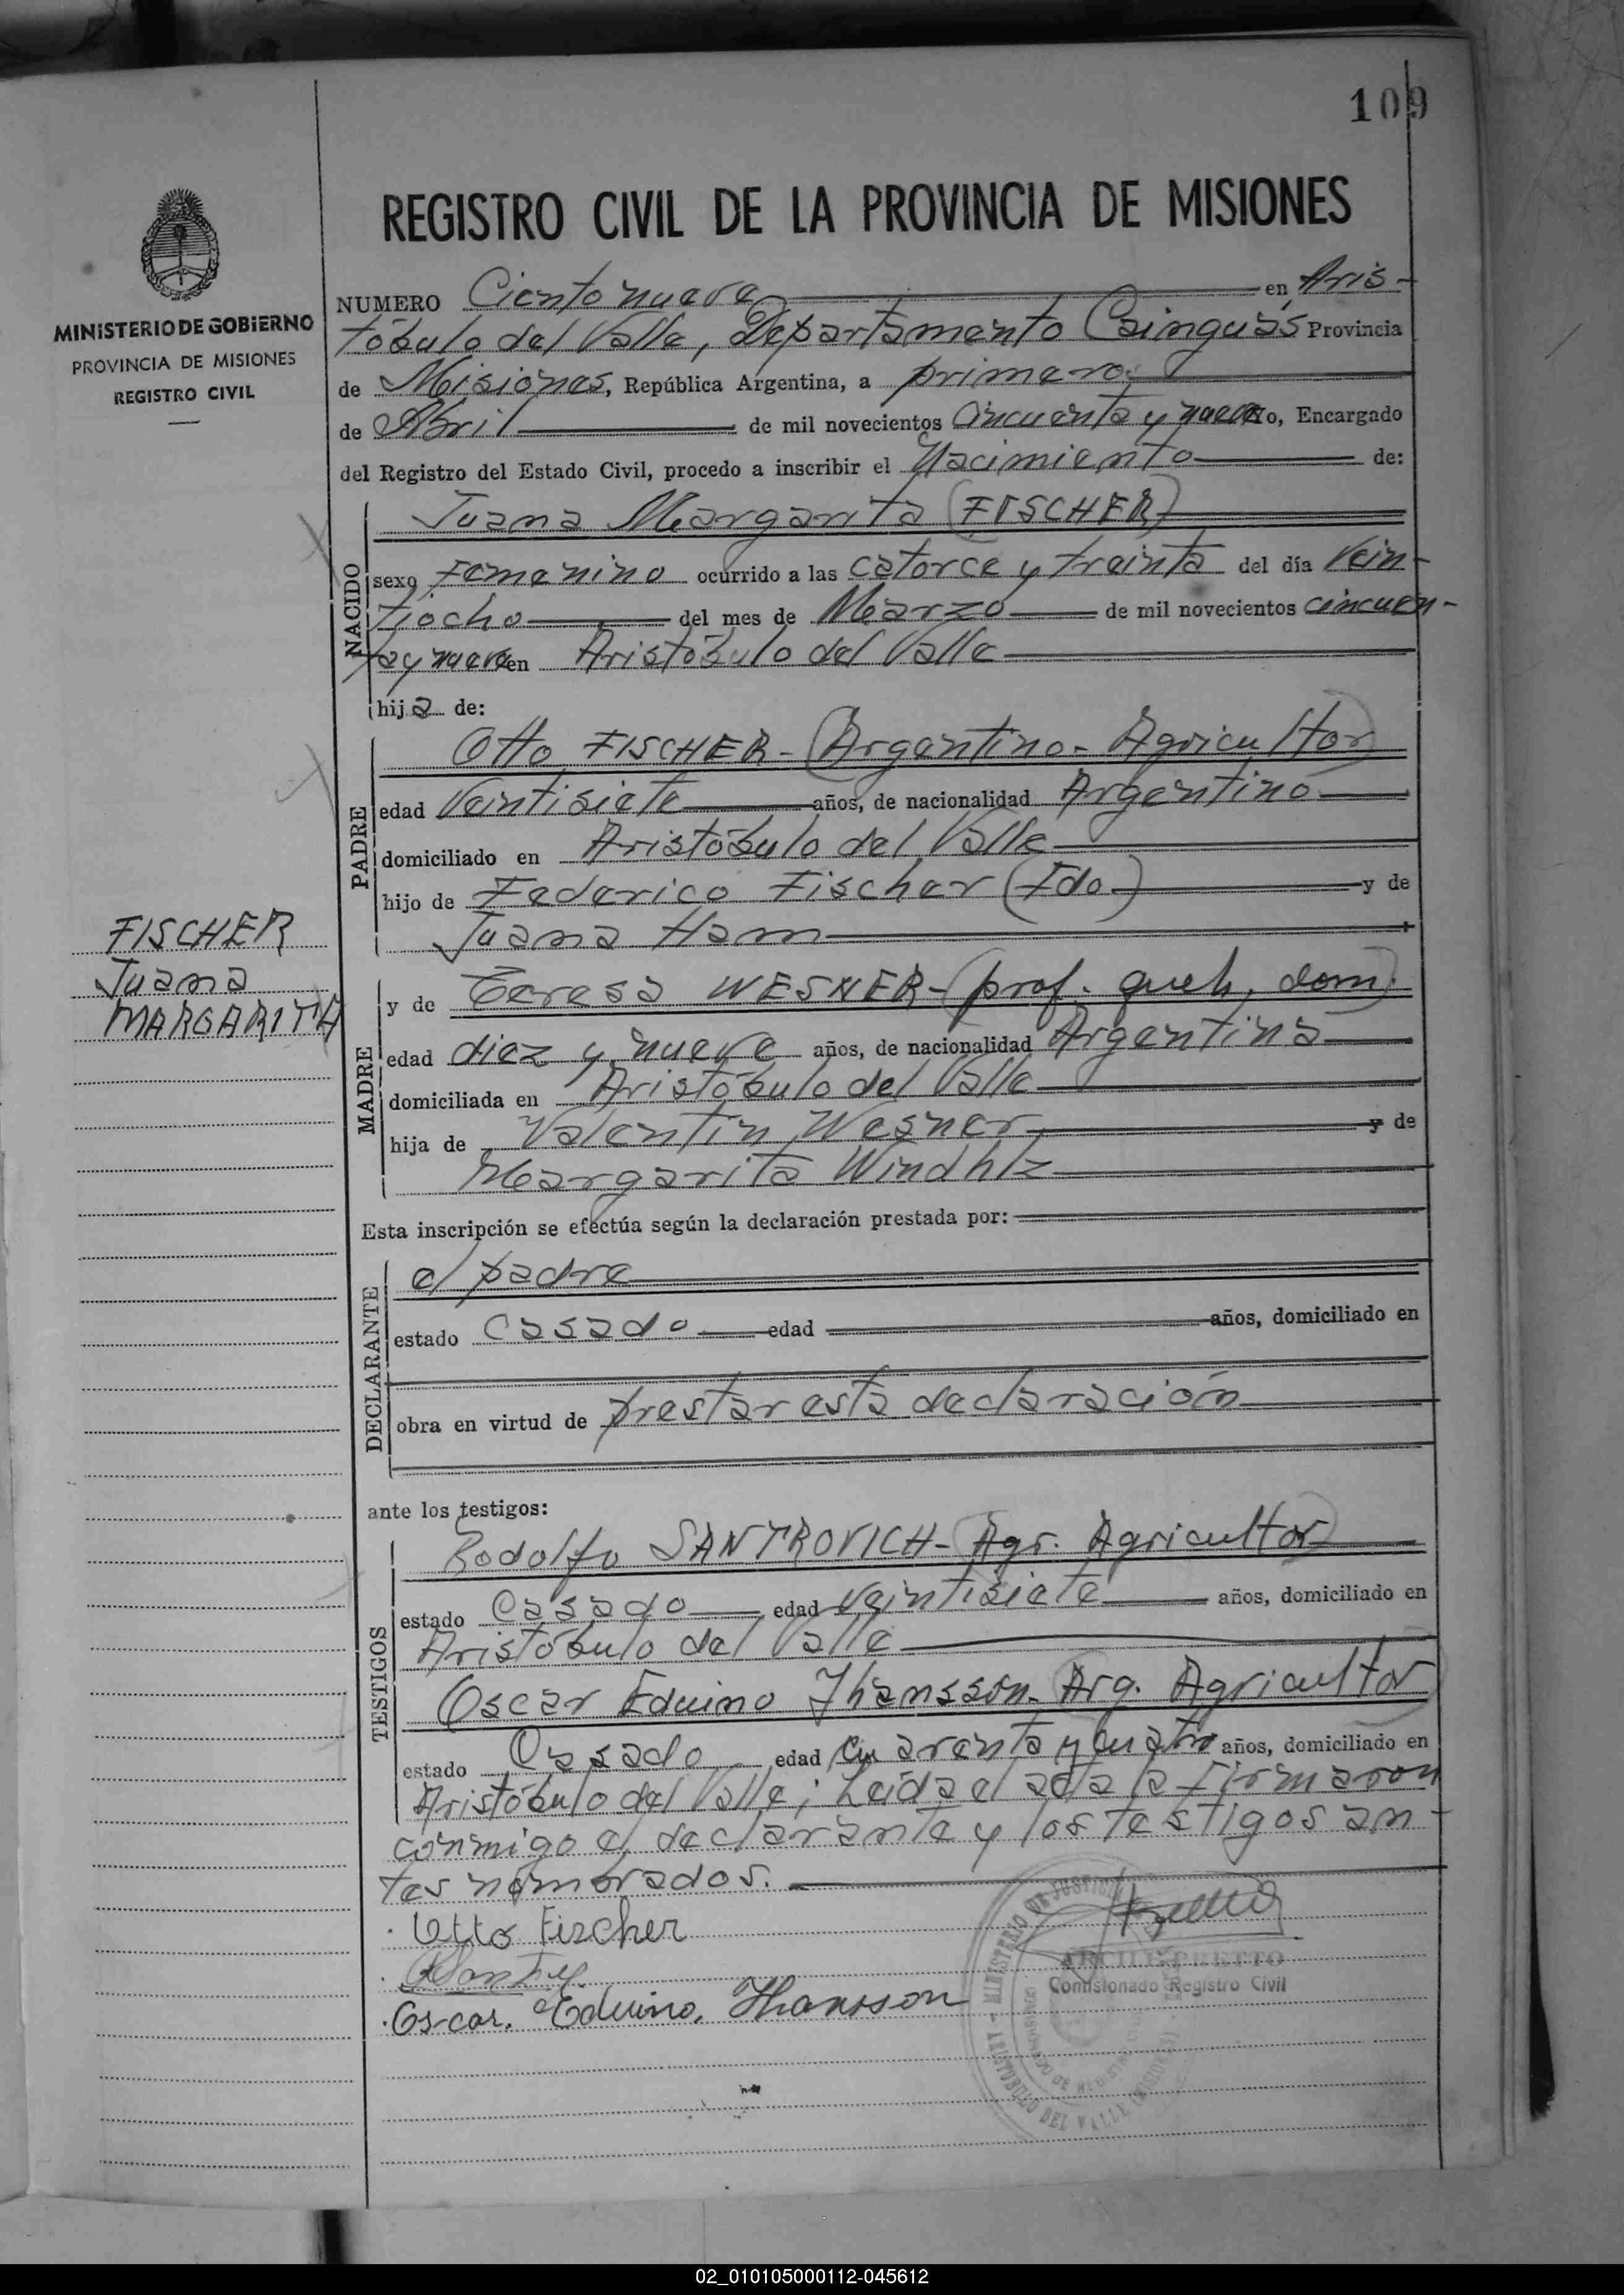 109
REGISTRO CIVIL DE LA PROVINCIA DE MISIONES
MINISTERIO DE GOBIERNO
PROVINCIA DE MISIONES
REGISTRO CIVIL
NUMERO Ciento nueve en Aris-
tóbulo del Valle, Departamento Cainguás Provincia
de Misiones, República Argentina, a primero
de Abril de mil novecientos cincuenta y nueve yo, Encargado
del Registro del Estado Civil, procedo a inscribir el Nacimiento de:
NACIDO
Juana Margarita (FISCHER)
sexo Femenino ocurrido a las catorce y treinta del día Vein-
tiocho del mes de Marzo de mil novecientos cincuen-
ta y nueve en Aristóbulo del Valle
hija de:
PADRE
Otto FISCHER - (Argentino - Agricultor)
edad Veintisiete años, de nacionalidad Argentino
domiciliado en Aristóbulo del Valle
hijo de Federico Fischer (Fdo.) y de
Juana Ham
FISCHER
Juana
MARGARITA
MADRE
y de Teresa WESNER - (prof. queh. dom)
edad diez y nueve años, de nacionalidad Argentina
domiciliada en Aristóbulo del Valle
hija de Valentin Wesner y de
Margarita Windhlz
Esta inscripción se efectúa según la declaración prestada por:
DECLARANTE
el padre
estado Casado edad años, domiciliado en
obra en virtud de prestar esta declaración
ante los testigos:
TESTIGOS
Rodolfo SANTROVICH - (Agr. Agricultor)
estado Casado edad Veintisiete años, domiciliado en
Aristóbulo del Valle
Oscar Eduino Jhansson - (Arg. Agricultor)
estado Casado edad Cuarenta y cuatro años, domiciliado en
Aristóbulo del Valle; Leída el acta la Firmaron
conmigo el declarante y los testigos an-
tes nombrados.
Otto Fischer
Oscar. Eduino. Jhansson
Comisionado Registro Civil
MINISTERIO DE JUSTICIA
ARISTOBULO DEL VALLE (MISIONES)
02_010105000112-045612